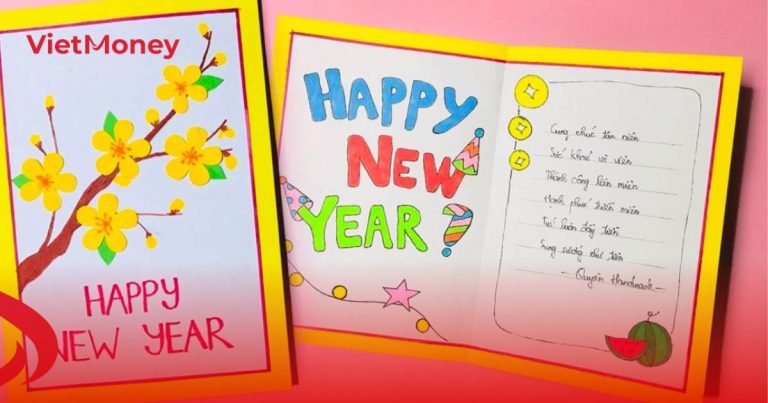 VietMoney
HAPPY
NEW YEAR
HAPPY
NEW
YEAR ?
Cung chúc tân niên
Sức khoẻ vô biên
Thành công liên miên
Hạnh phúc triền miên
Túi luôn đầy tiền
Sung sướng như tiên
— Quyên Handmade —